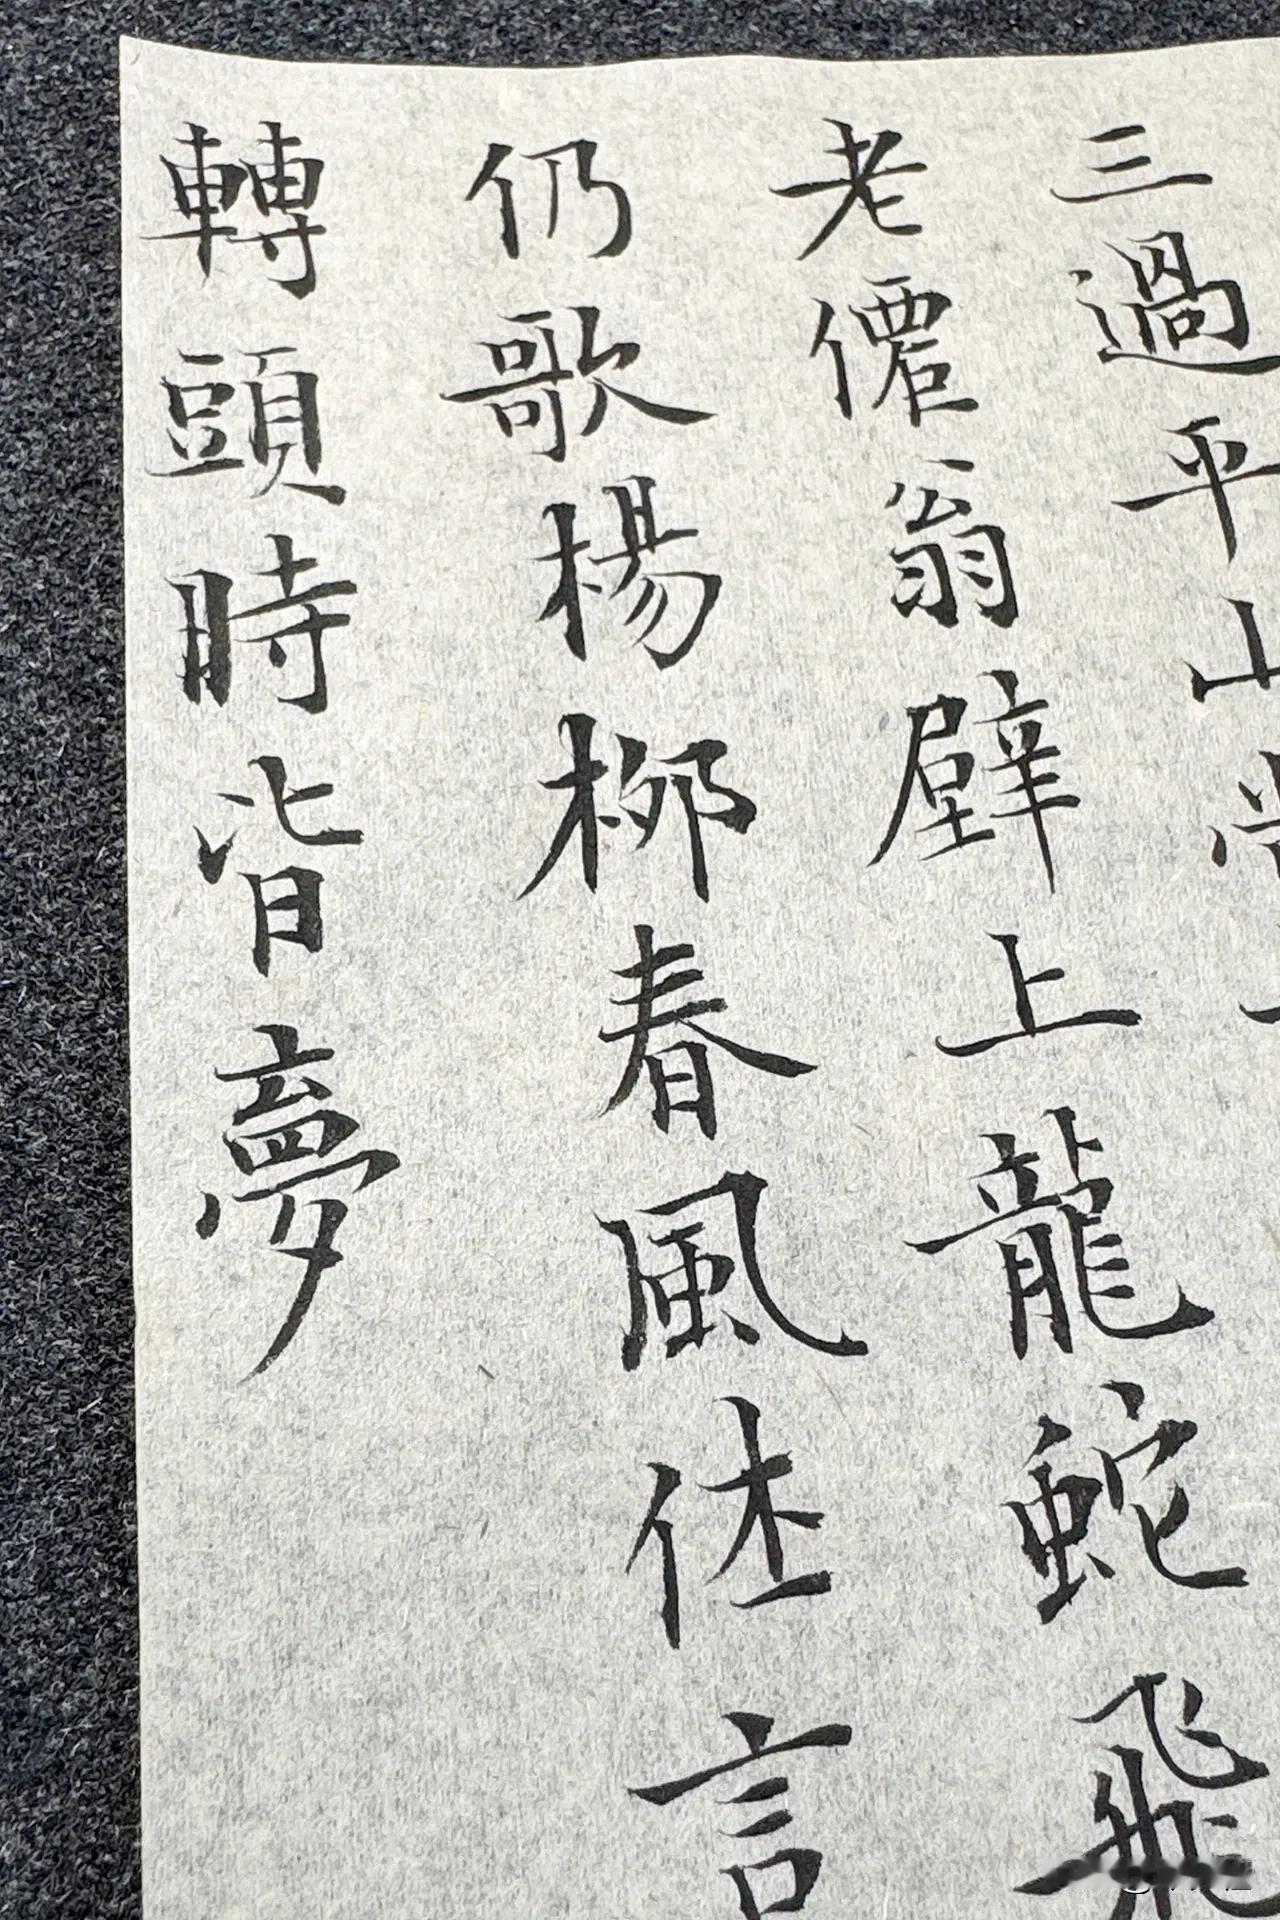 三過平山堂
老僊翁壁上龍蛇飛
仍歌楊柳春風休言
轉頭時皆夢